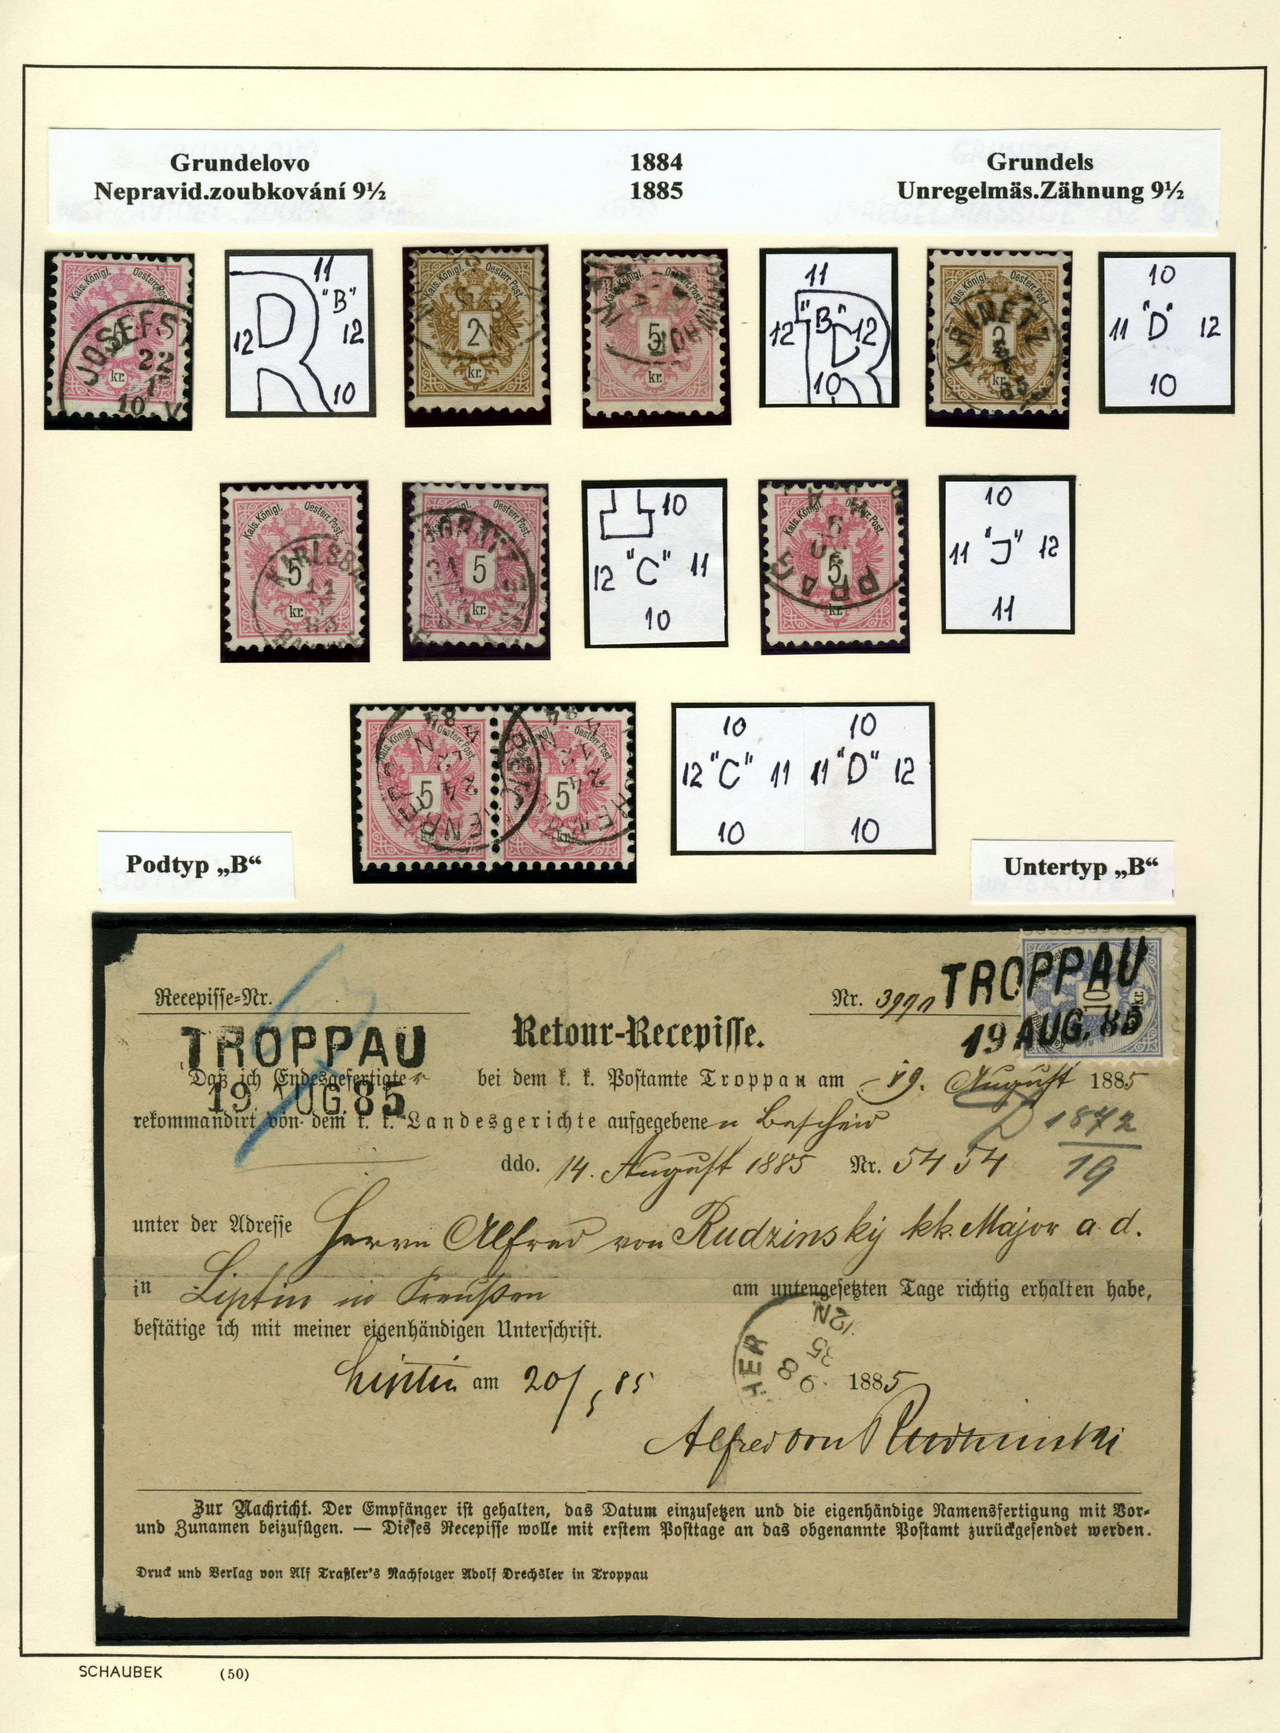 Grundelovo 1884 Grundels
Nepravid.zoubkování 9½ 1885 Unregelmäs.Zähnung 9½
Kais.Königl. Oesterr.Post.
5
kr.
JOSEFS
22
10
11
"B"
12 12
10
Kais.Königl. Oesterr.Post.
2
kr.
Kais.Königl. Oesterr.Post.
5
kr.
11
12 "B" 12
10
2
kr.
85
10
11 "D" 12
10
Kais.Königl. Oesterr.Post.
5
kr.
KARLSBA
11
Kais.Königl. Oesterr.Post.
5
kr.
10
12 "C" 11
10
Kais.Königl. Oesterr.Post.
5
kr.
PRAG
10
11 "J" 12
11
5
kr.
5
kr.
84
24
10 10
12 "C" 11 11 "D" 12
10 10
Podtyp „B“ Untertyp „B“
TROPPAU
19 AUG. 85
10
kr.
Recepisse-Nr. Nr.
TROPPAU
19 AUG. 85
Retour-Recepisse.
Daß ich Endesgefertigter bei dem k. k. Postamte Troppau am 19. August 1885
rekommandirt von dem k. k. Landesgerichte aufgegebenen Bescheid
1872
19
ddo. 14. August 1885 Nr. 5454
unter der Adresse Herrn Alfred von Rudzinsky kk. Major a. d.
in Liptin in Preußen am untengesetzten Tage richtig erhalten habe,
bestätige ich mit meiner eigenhändigen Unterschrift.
HER
9 8
85
12N
Liptin am 20/ 85 1885
Alfred von Rudzinski
Zur Nachricht. Der Empfänger ist gehalten, das Datum einzusetzen und die eigenhändige Namensfertigung mit Vor-
und Zunamen beizufügen. — Dieses Recepisse wolle mit erstem Posttage an das obgenannte Postamt zurückgesendet werden.
Druck und Verlag von Alf Traßler's Nachfolger Adolf Drechsler in Troppau
SCHAUBEK (50)